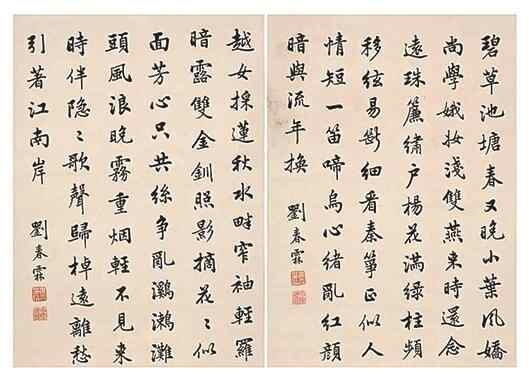 碧草池塘春又晚小葉風嬌
尚學娥妝淺雙燕来時還念
遠珠簾繡戶楊花滿綠柱頻
移絃易斷細看秦箏正似人
情短一笛啼烏心緒亂紅顏
暗與流年換
劉春霖
越女採蓮秋水畔窄袖輕羅
暗露雙金釧照影摘花〻似
面芳心只共絲爭亂鸂鶒灘
頭風浪晚霧重烟輕不見来
時伴隐〻歌聲歸棹遠離愁
引著江南岸
劉春霖